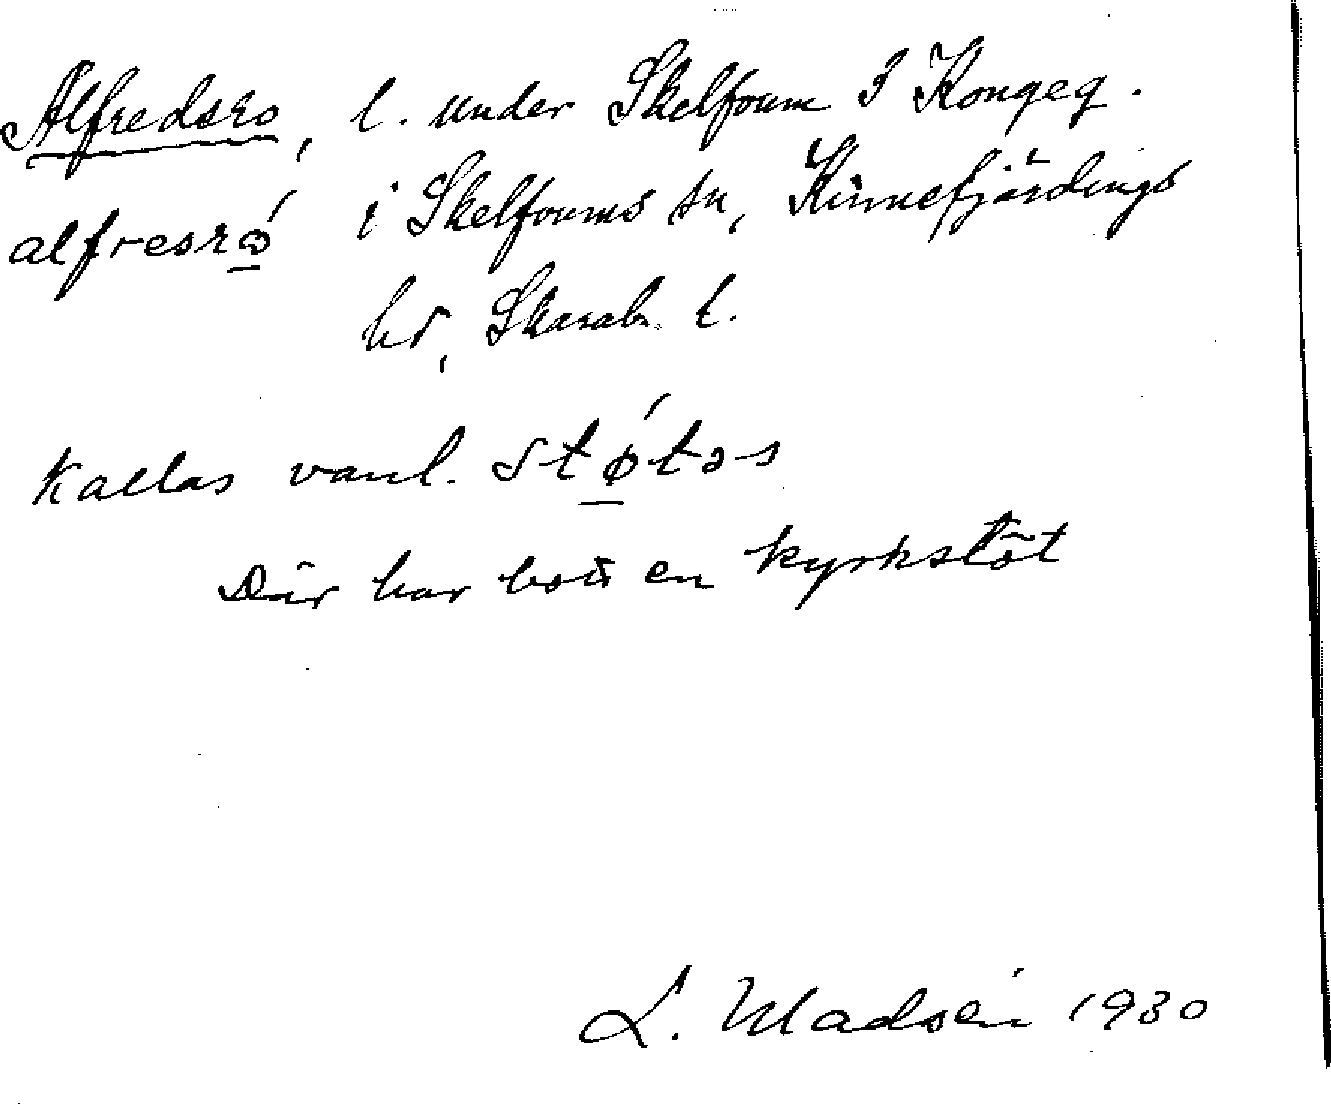 Alfredsro, l. under Skelfoum 3 Kongeg.
alfresrǿ i Skelfoums sn, Kinnefjärdings
hd, Skarab. l.
Kallas vanl. stǿtəs
Där har bott en kyrkstöt
L. Madsén 1930